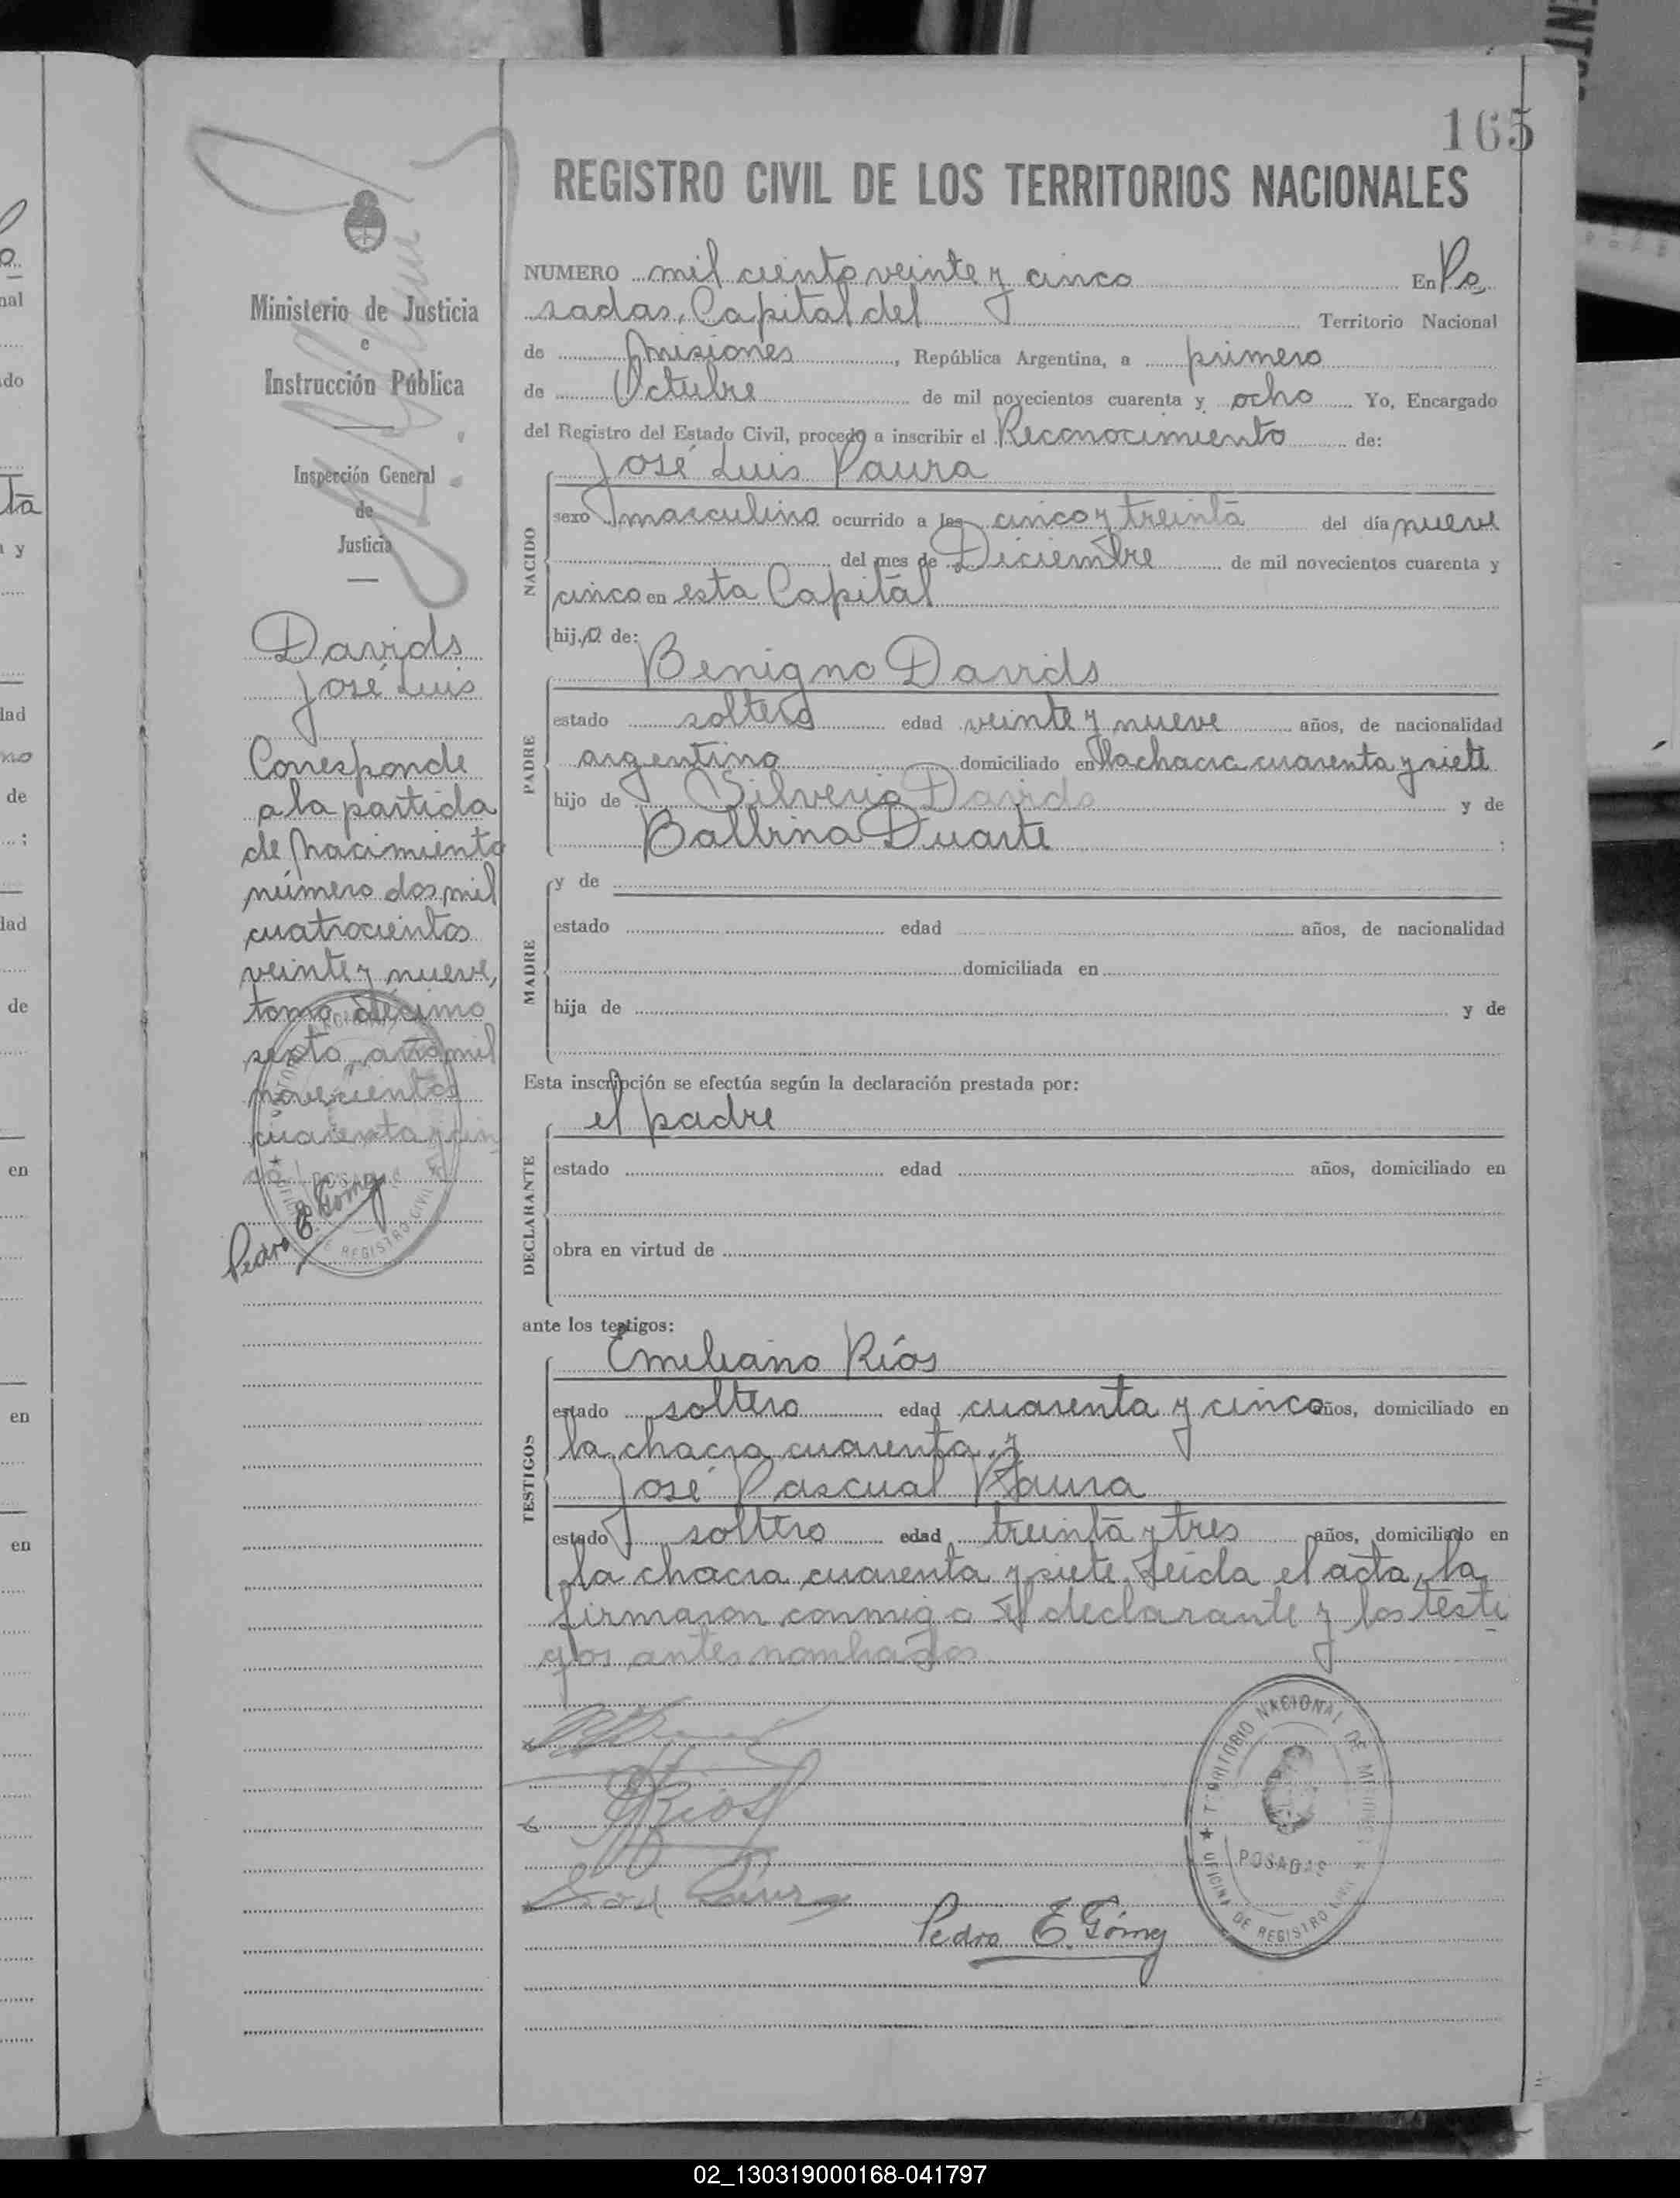 165
REGISTRO CIVIL DE LOS TERRITORIOS NACIONALES
Ministerio de Justicia
e
Instrucción Pública
Inspección General
de
Justicia
Davids
José Luis
Corresponde
a la partida
de nacimiento
número dos mil
cuatrocientos
veinte y nueve,
tomo décimo
sexto año mil
novecientos
cuarenta y cin
co
Pedro E Gómez
NUMERO mil ciento veinte y cinco En Po
sadas, Capital del Territorio Nacional
de Misiones, República Argentina, a primero
de Octubre de mil novecientos cuarenta y ocho Yo, Encargado
del Registro del Estado Civil, procedo a inscribir el Reconocimiento de:
José Luis Paura
NACIDO
sexo masculino ocurrido a las cinco y treinta del día nueve
del mes de Diciembre de mil novecientos cuarenta y
cinco en esta Capital
hij.o de:
Benigno Davids
PADRE
estado soltero edad veinte y nueve años, de nacionalidad
argentino domiciliado en la chacra cuarenta y siete
hijo de Silverio Davids y de
Balbina Duarte ;
MADRE
y de
estado edad años, de nacionalidad
domiciliada en
hija de y de
Esta inscripción se efectúa según la declaración prestada por:
el padre
DECLARANTE
estado edad años, domiciliado en
obra en virtud de
ante los testigos:
Emiliano Ríos
TESTIGOS
estado soltero edad cuarenta y cinco años, domiciliado en
la chacra cuarenta y
José Pascual Paura
estado soltero edad treinta y tres años, domiciliado en
la chacra cuarenta y siete. Leida el acta, la
firmaron conmigo el declarante y los testi
gos antes nombrados
Ríos
Pedro E. Gómez
TERRITORIO NACIONAL DE MISIONES
POSADAS
OFICINA DE REGISTRO CIVIL
02_130319000168-041797